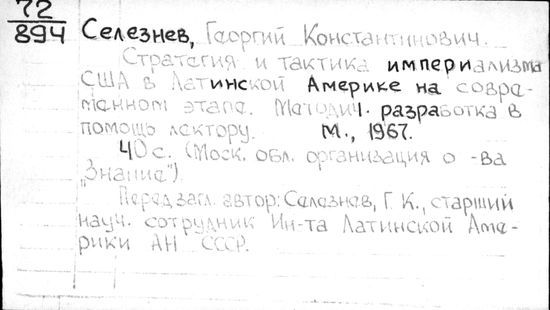 72
894
Селезнев, Георгий Константинович.
Стратегия и тактика империализма
США в Латинской Америке на совре-
менном этапе. Методич. разработка в
помощь лектору. М., 1967.
40 с. (Моск. обл. организация о-ва
"Знание").
Перед загл. автор: Селезнев, Г. К., старший
науч. сотрудник Ин-та Латинской Аме-
рики АН СССР.